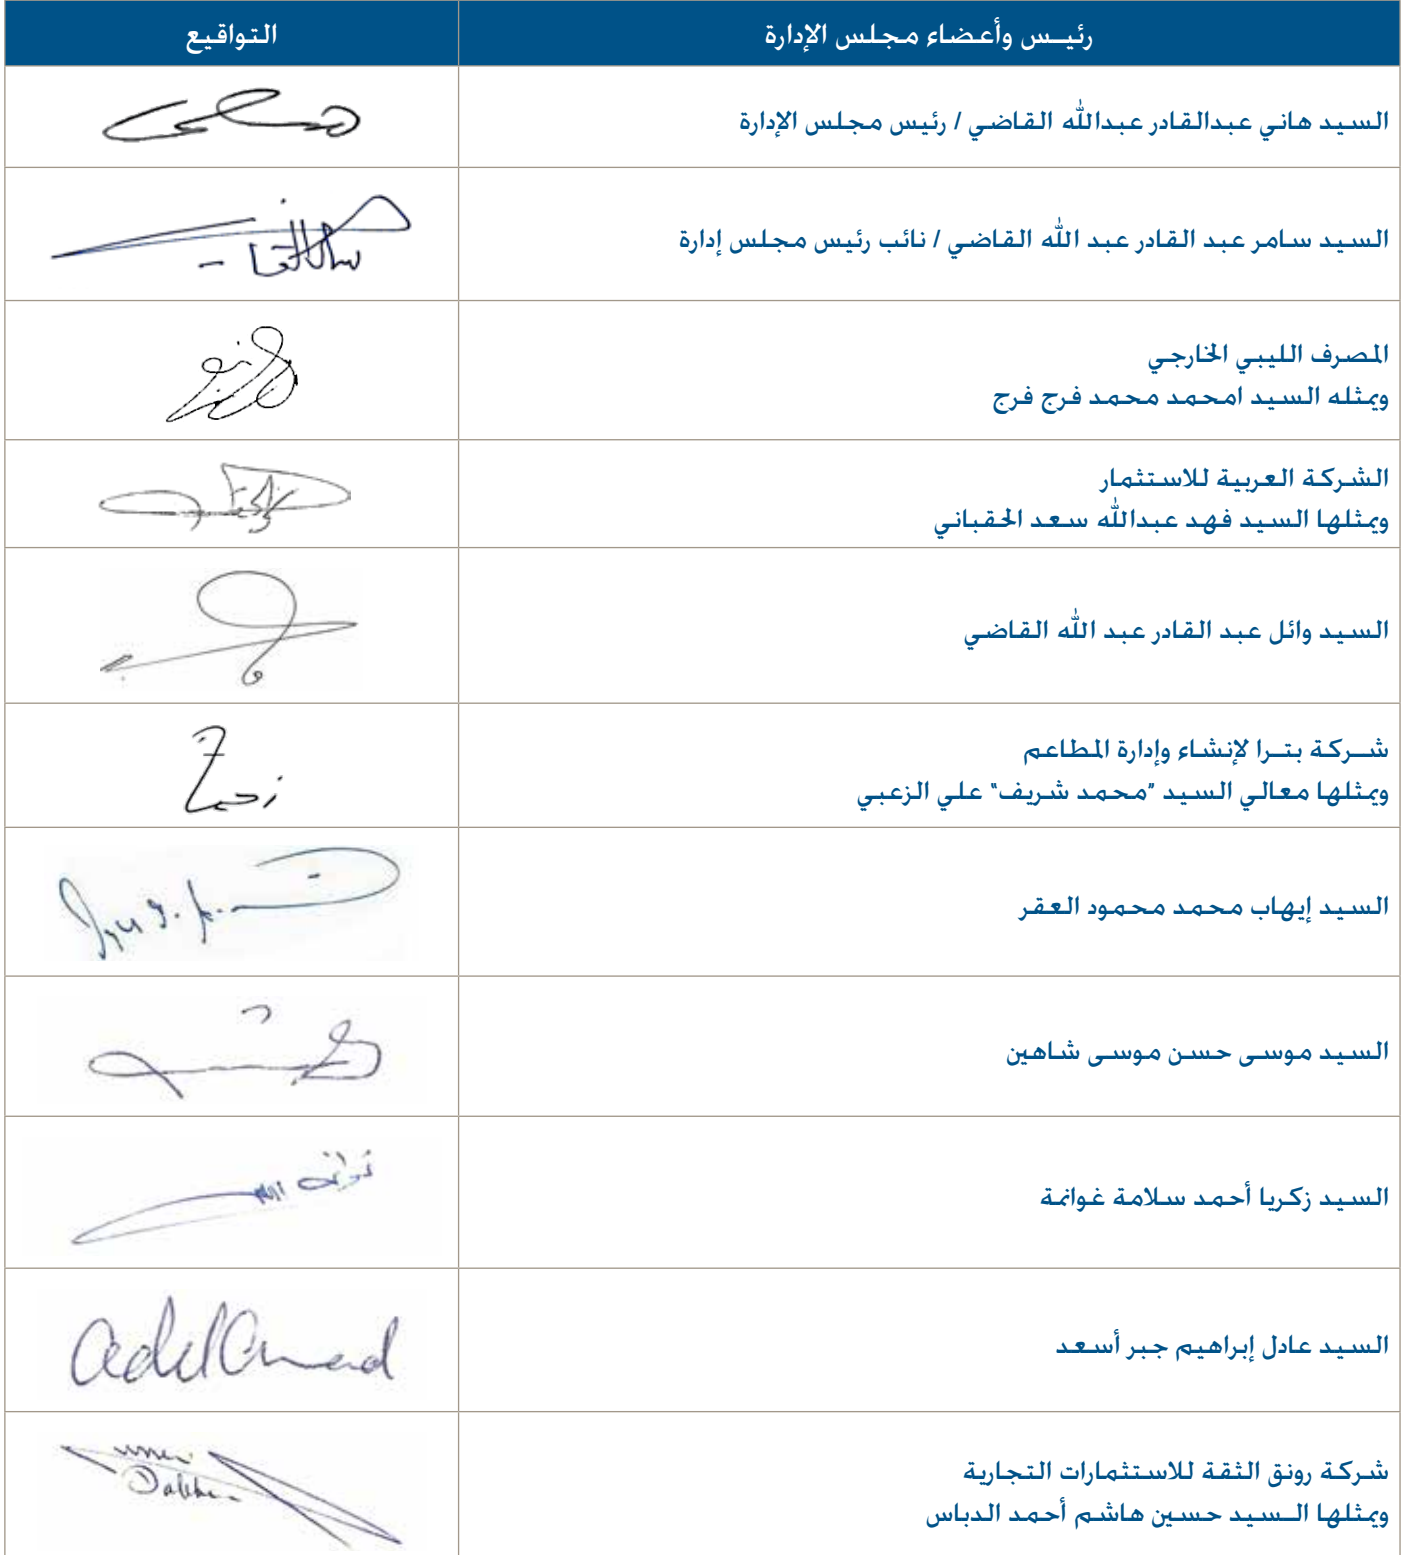 رئيــس وأعضاء مجلس الإدارة
التواقيع
السيد هاني عبدالقادر عبدالله القاضي / رئيس مجلس الإدارة
السيد سامر عبد القادر عبد الله القاضي / نائب رئيس مجلس إدارة
المصرف الليبي الخارجي
ويمثله السيد امحمد محمد فرج فرج
الشركة العربية للاستثمار
ويمثلها السيد فهد عبدالله سعد الحقباني
السيد وائل عبد القادر عبد الله القاضي
شــركة بتــرا لإنشاء وإدارة المطاعم
ويمثلها معالي السيد "محمد شريف" علي الزعبي
السيد إيهاب محمد محمود العقر
السيد موسى حسن موسى شاهين
السيد زكريا أحمد سلامة غوانمة
السيد عادل إبراهيم جبر أسعد
شركة رونق الثقة للاستثمارات التجارية
ويمثلها الــسيد حسين هاشم أحمد الدباس